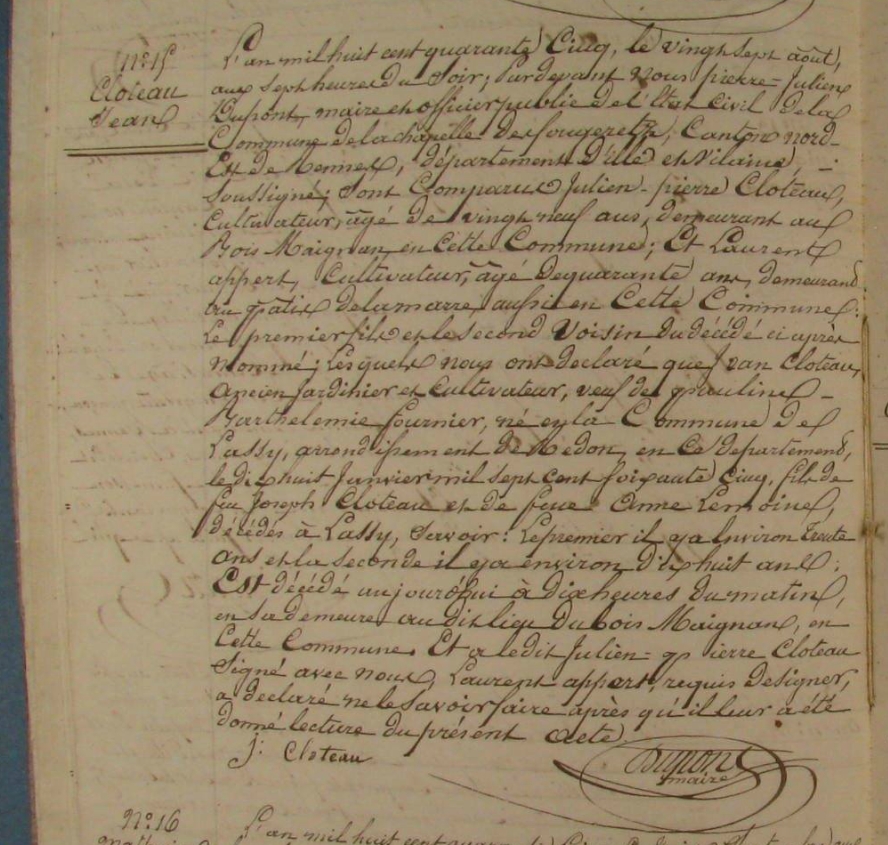 N.o 15
Cloteau
Jean
L'an mil huit cent quarante Cinq, le vingt sept août,
aux sept heures du Soir; Pardevant nous pierre-Julien
Dupont, maire et officier public de l'Etat Civil de la
Commune de la chapelle des fougeretz, Canton nord-
Est de Rennes, département d'ille et vilaine
Soussigné; Sont Comparus Julien-pierre Cloteau,
Cultivateur, âgé de vingt neuf ans, demeurant au
Bois Maignan, en Cette Commune; Et Laurent
appert, Cultivateur, âgé de quarante ans, demeurant
au pâtis de la marre, aussi en Cette Commune:
Le premier fils et le second Voisin du décédé ci après
nommé; Lesquels nous ont declaré que Jean Cloteau,
ancien Jardinier et Cultivateur, veuf de pauline-
Barthelemie fournier, né en la Commune de
Lassy, arrondissement de Redon, en ce departement,
le dix huit Janvier mil sept cent soixante Cinq, fils de
feu Joseph Cloteau et de feue Anne Lemoine,
décédés à Lassy, Savoir: Le premier il y a Environ trente
ans et la seconde il y a environ dix huit ans.
Est décédé aujourd'hui à dix heures du matin,
en sa demeure au dit lieu du bois Maignan, en
Cette Commune. Et a ledit Julien-pierre Cloteau
Signé avec nous, Laurent appert, requis de signer,
a declaré ne le Savoir faire après qu'il leur a été
donné lecture du présent acte
j. Cloteau
Dupont
maire
N.o 16
L'an mil huit cent